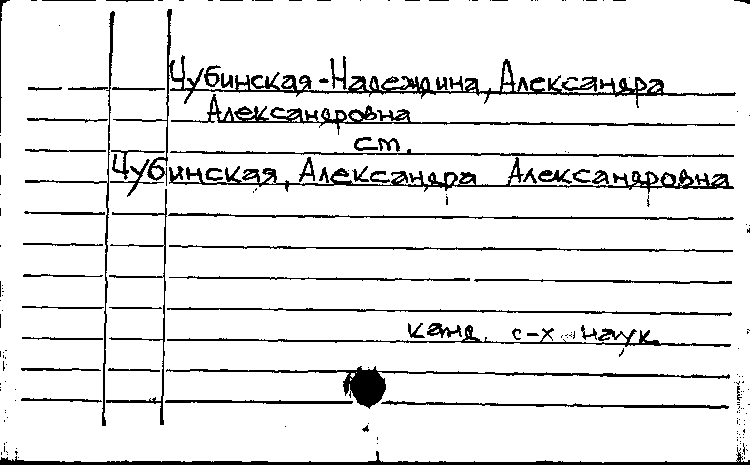 Чубинская-Надеждина, Александра
Александровна
ст.
Чубинская, Александра Александровна
канд. с-х наук.